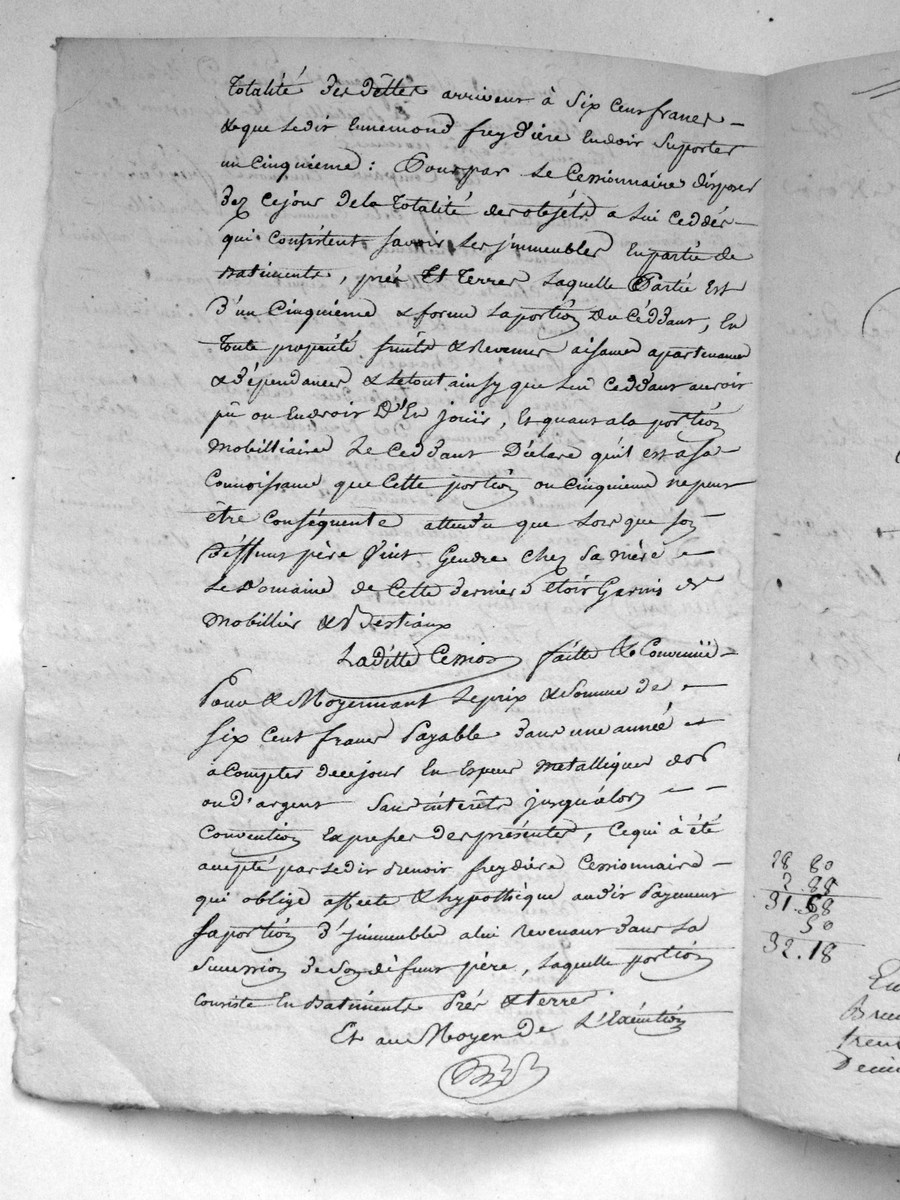 Totalité des dettes arrivent à Six cent francs –
& que ledit Ennemond freydière en doit suporter
un cinquieme : Pour par le Cessionnaire disposer
dez ce jour de la Totalité des objéts a lui ceddés –
qui consistent savoir les jmmeubles En partie de
Batiments, prés Et Terres laquelle Partie Est
d'un Cinquieme & forme la portion du Céddant, En
toute propriété fruits & Revenus aisances apartenances
& dépendances & le tout ainsy que led. Ceddant auroit
pû ou En droit D'En jouir, Et quant a la portion
mobilliaire Le Ceddant Déclare qu'il est a sa
Connoissance que Cette portion ou Cinquieme ne peut
être Conséquente attendu que Lors que son
déffunt père Vint Gendre Chez sa mère –
Le Domaine de Cette derniere étoit Garnis de
mobillier & Bestiaux
La ditte Cession faitte & Convenüe –
Pour & Moyennant le prix & Somme de –
Six Cent francs Payable dans une année –
a Compter de ce jour En Especes métalliques d'or
ou d'argent Sans intérêts jusqu'alors – –
Convention Expresses des présentes, Ce qui à été
accepté par ledit Benoit freydière Cessionnaire –
qui oblige affecte & hypothèque audit Payement
sa portion d'jmmeubles a lui Revenant dans la
Succession de son défunt père, laquelle portion
Consiste En Batiments Prés & terres.
Et au Moyen de L'Exécution
28 80
2.88
31.68
50
32.18